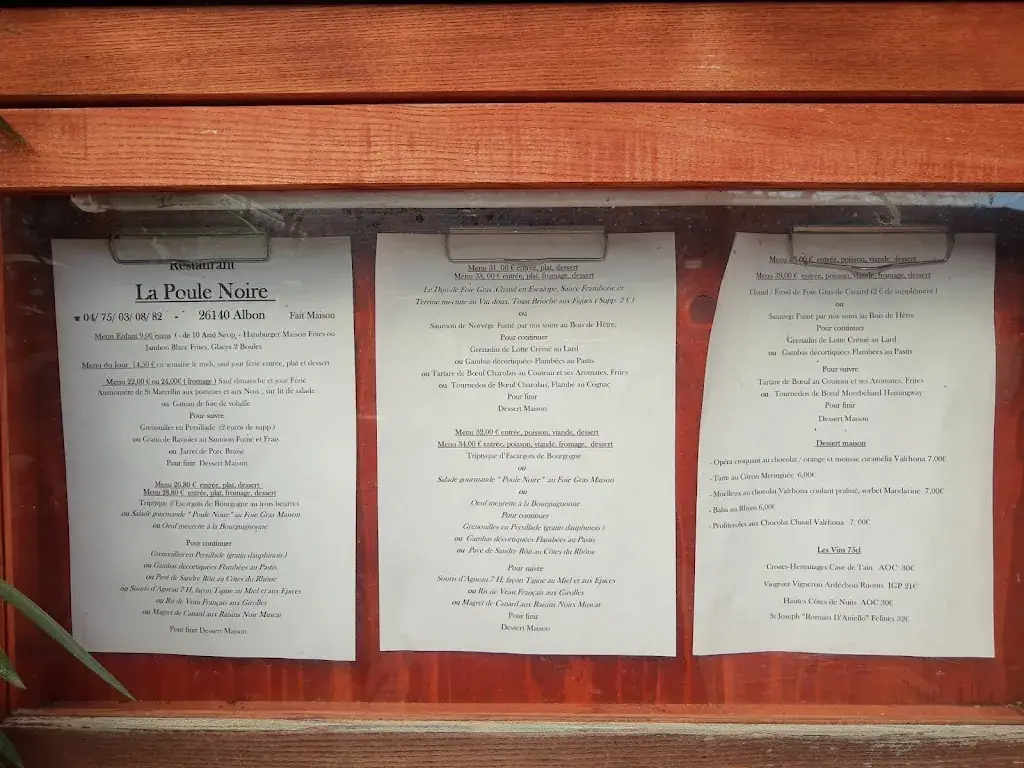 Restaurant
La Poule Noire
☎ 04/ 75/ 03/ 08/ 82 - 26140 Albon Fait Maison
Menu Enfant 9,00 euros ( - de 10 Ans) Sirop - Hamburger Maison Frites ou
Jambon Blanc Frites, Glaces 2 Boules
Menu du Jour 14,50 € en semaine le midi, sauf jour férié entrée, plat et dessert
Menu 22,00 € ou 24,00€ ( fromage ) Sauf dimanche et jour Férié
Aumonière de St Marcellin aux pommes et aux Noix , sur lit de salade
ou Gateau de foie de volaille
Pour suivre
Grenouilles en Persillade (2 euros de supp.)
ou Gratin de Ravioles au Saumon Fumé et Frais
ou Jarret de Porc Braisé
Pour finir Dessert Maison
Menu 26,80 € entrée, plat, dessert
Menu 28,80 € entrée, plat, fromage, dessert
Triptyque d'Escargots de Bourgogne au trois beurres
ou Salade gourmande " Poule Noire" au Foie Gras Maison
ou Oeuf meurette à la Bourguignonne
Pour continuer
Grenouilles en Persillade (gratin dauphinois )
ou Gambas décortiquées Flambées au Pastis.
ou Pavé de Sandre Rôti au Côtes du Rhône
ou Souris d'Agneau 7 H, façon Tajine au Miel et aux Epices
ou Ris de Veau Français aux Girolles
ou Magret de Canard aux Raisins Noir Muscat
Pour finir Dessert Maison
Menu 31, 00 € entrée, plat, dessert
Menu 33, 00 € entrée, plat, fromage, dessert
Le Duo de Foie Gras ,Chaud en Escalope, Sauce Framboise et
Terrine mi-cuite au Vin doux, Toast Brioché aux Figues ( Supp. 2 € )
ou
Saumon de Norvège Fumé par nos soins au Bois de Hêtre.
Pour continuer
Grenadin de Lotte Crémé au Lard
ou Gambas décortiquées Flambées au Pastis
ou Tartare de Bœuf Charolais au Couteau et ses Aromates, Frites
ou Tournedos de Bœuf Charolais, Flambé au Cognac
Pour finir
Dessert Maison
Menu 32,00 € entrée, poisson, viande, dessert
Menu 34,00 € entrée, poisson, viande, fromage, dessert
Triptyque d'Escargots de Bourgogne
ou
Salade gourmande " Poule Noire" au Foie Gras Maison
ou
Oeuf meurette à la Bourguignonne
Pour continuer
Grenouilles en Persillade (gratin dauphinois )
ou Gambas décortiquées Flambées au Pastis
ou Pavé de Sandre Rôti au Côtes du Rhône
Pour suivre
Souris d'Agneau 7 H, façon Tajine au Miel et aux Epices
ou Ris de Veau Français aux Girolles
ou Magret de Canard aux Raisins Noirs Muscat
Pour finir
Dessert Maison
Menu ,00 € entrée, poisson, viande, dessert
Menu 39,00 € entrée, poisson, viande, fromage, dessert
Chaud / Froid de Foie Gras de Canard (2 € de supplément )
ou
Saumon Fumé par nos soins au Bois de Hêtre.
Pour continuer
Grenadin de Lotte Crémé au Lard
ou Gambas décortiquées Flambées au Pastis
Pour suivre
Tartare de Bœuf au Couteau et ses Aromates, Frites
ou Tournedos de Bœuf Montbéliard Hemingway
Pour finir
Dessert Maison
Dessert maison
- Opéra croquant au chocolat / orange et mousse caramélia Valrhona 7,00€
- Tarte au Citron Meringuée 6,00€
- Moelleux au chocolat Valrhona coulant praliné, sorbet Mandarine 7,00€
- Baba au Rhum 6,00€
- Profiteroles aux Chocolat Chaud Valrhona 7, 00€
Les Vins 75cl
Crozes-Hermitages Cave de Tain AOC 30€
Viognier Vigneron Ardéchois Rooms IGP 21€
Hautes Côtes de Nuits AOC 30€
St Joseph "Romain D'Aniello" Félines 32€